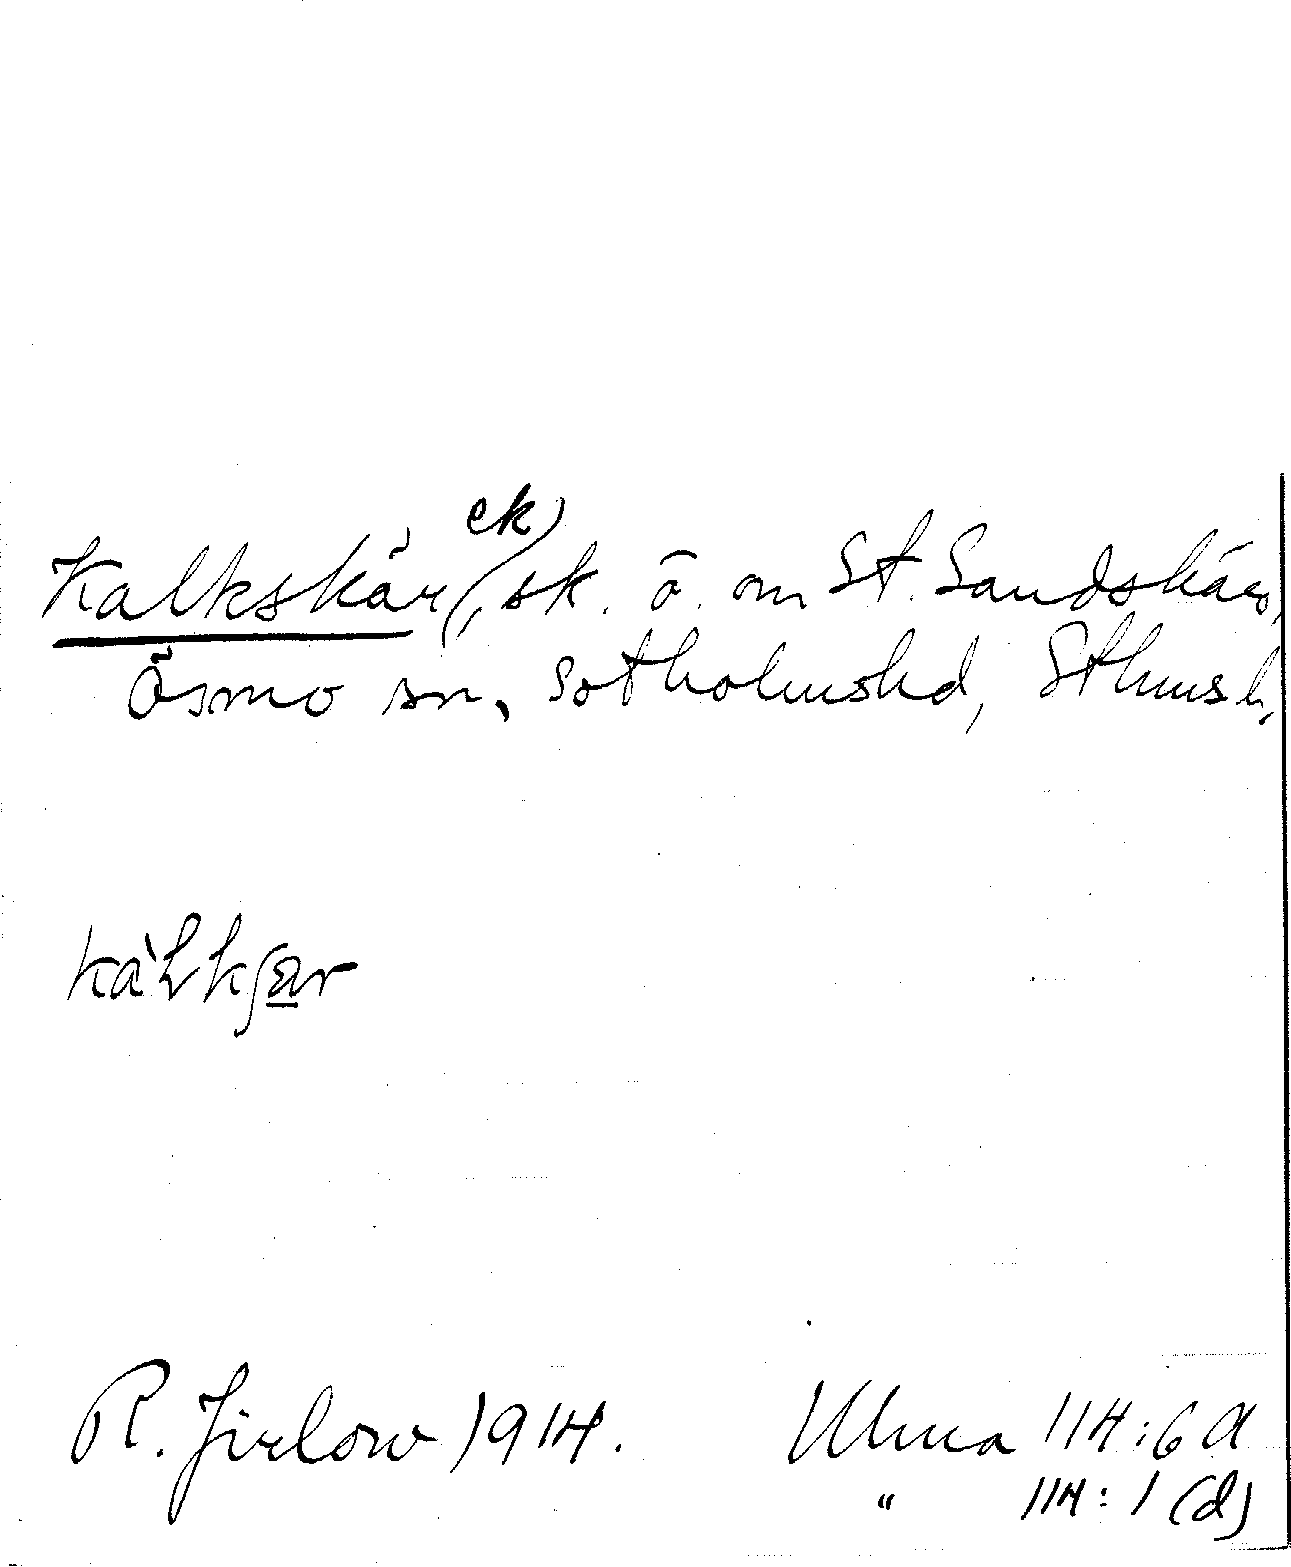 Kalkskär (ek), sk. ö. om St. Sandskär,
Ösmo sn, Sotholmshd, Sthms l.
kàLkʃ<u>a</u>r
R. Jirlow 1914. Ulma 114:6 a
" 114:1 (d)